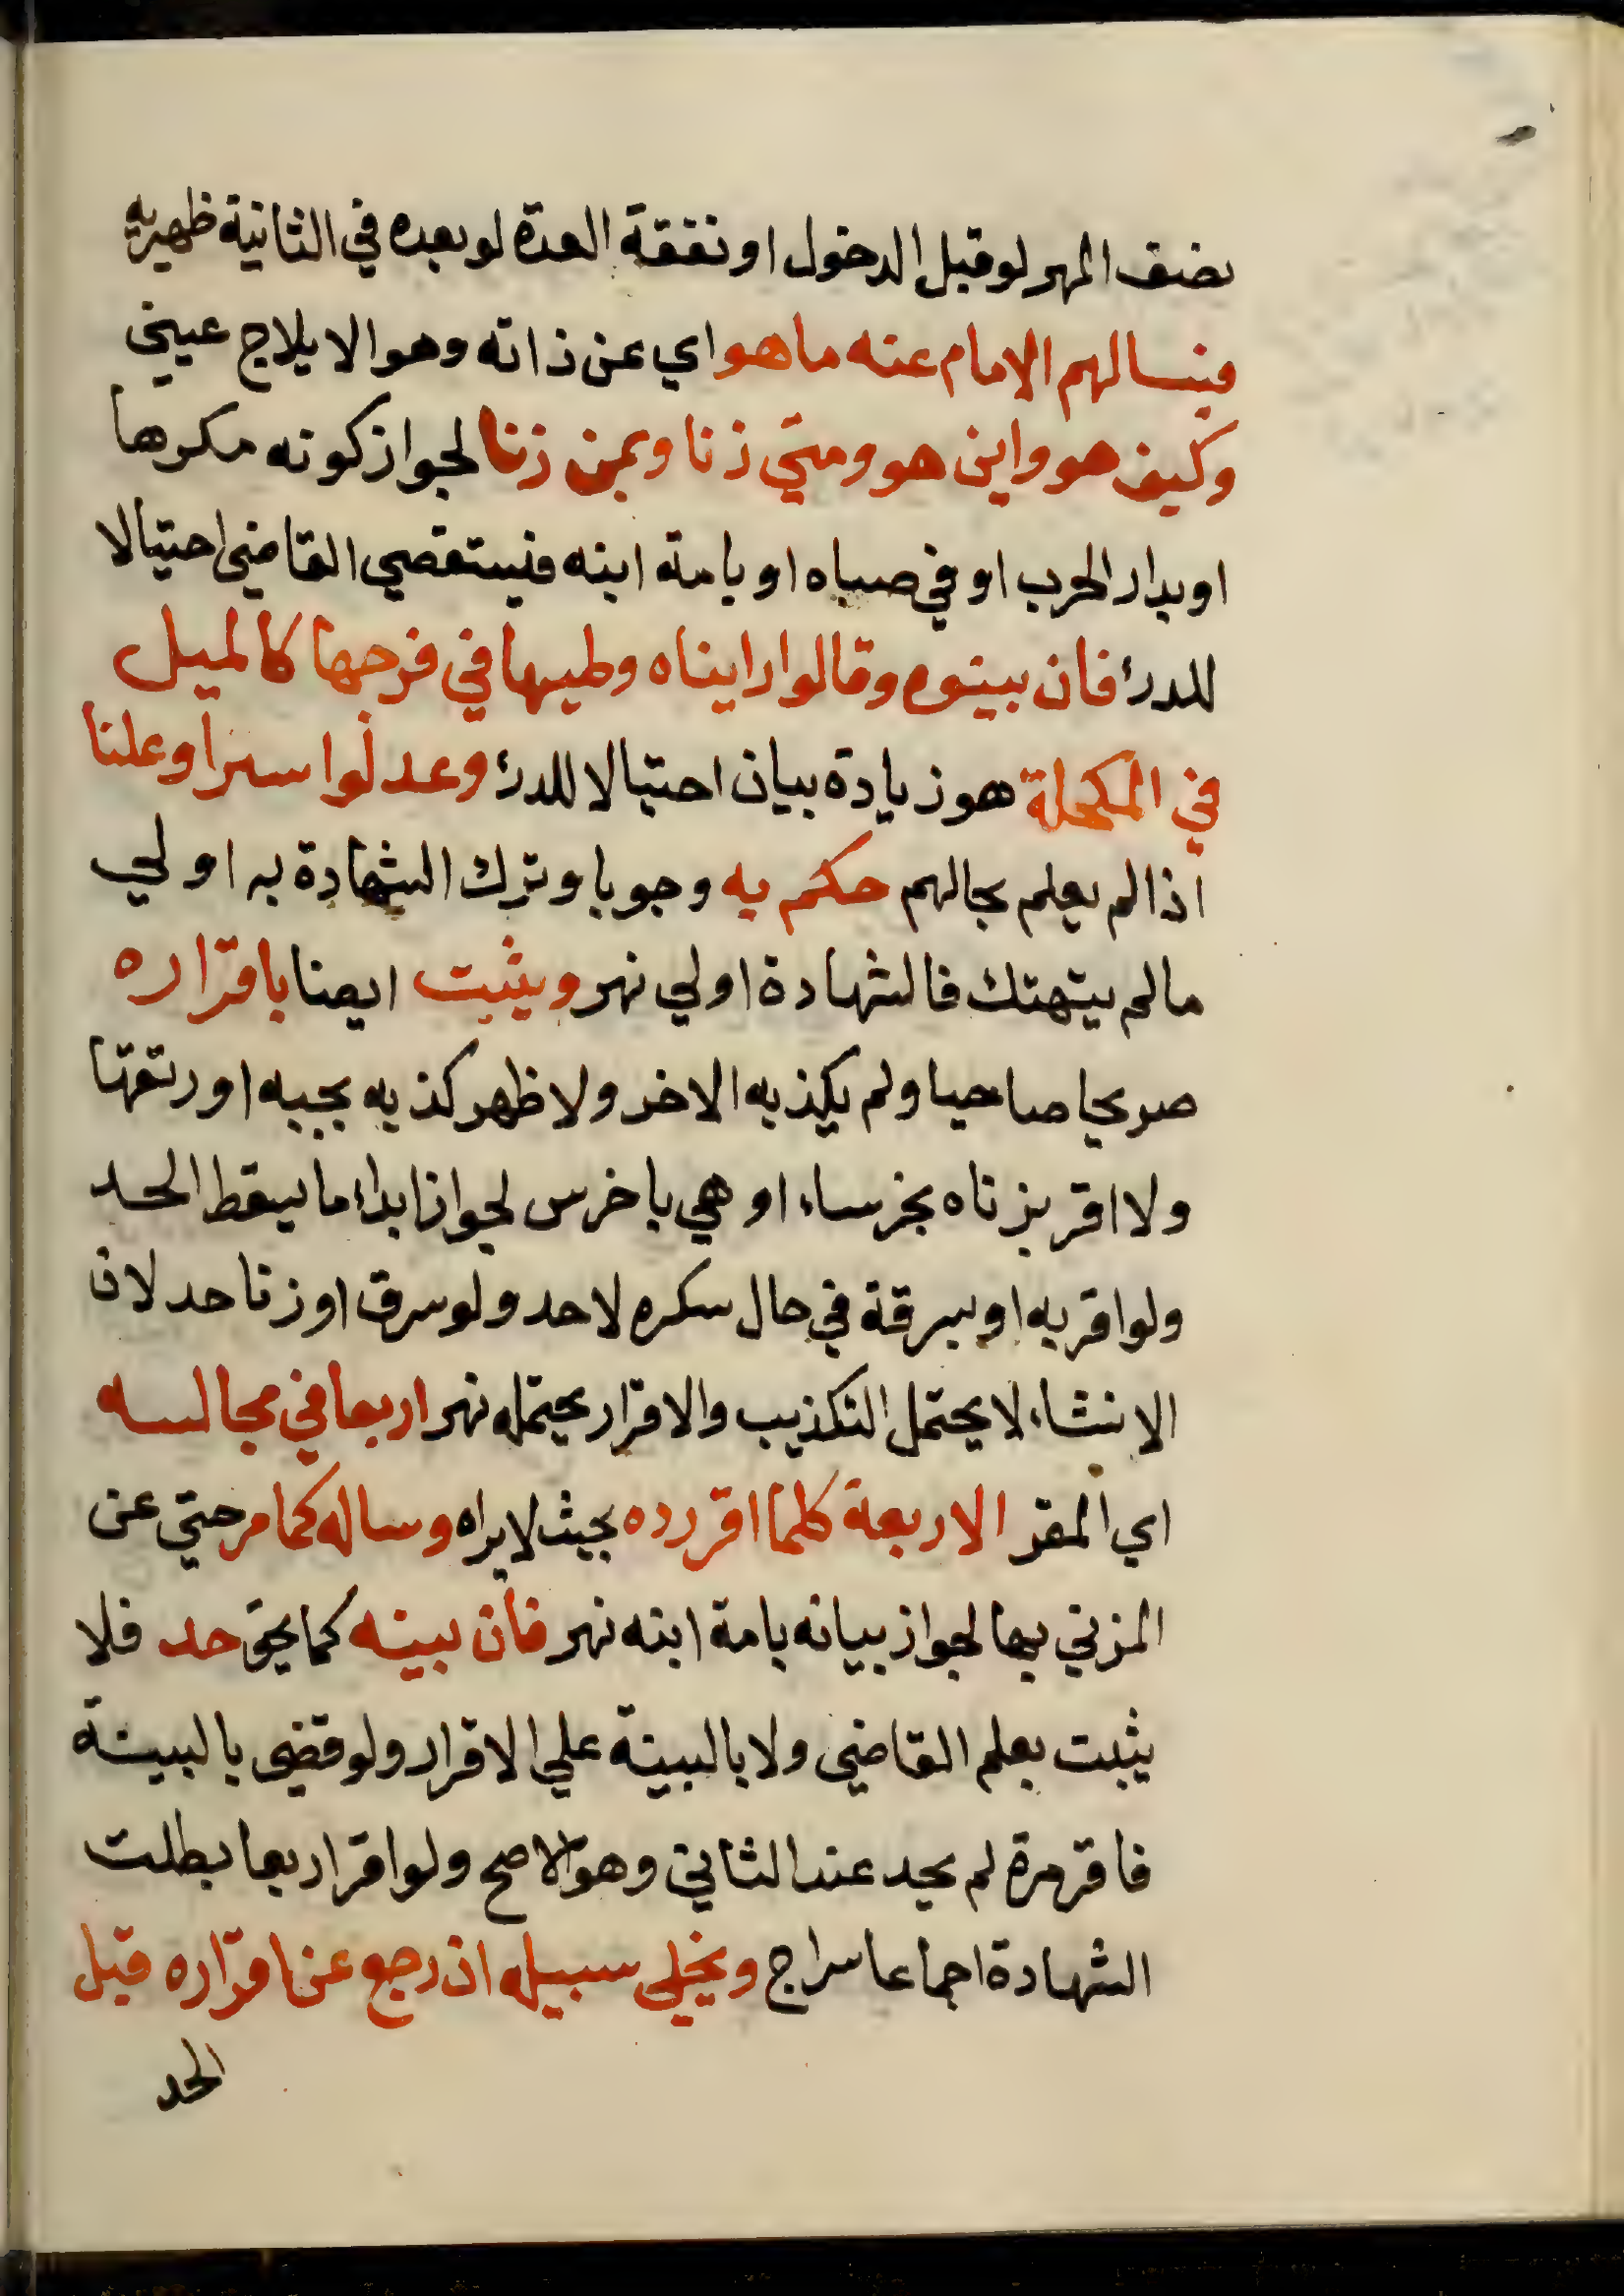 نصف المهر لو قبل الدخول او نفقة العدة لو بعده في الثانية ظهيريه
فيسالهم الامام عنه ما هو اي عن ذاته وهو الايلاج عيني
وكيف هو واين هو ومتي زنا وبمن زنا لجواز كونه مكرها
او بدار الحرب او في صباه او بامة ابنه فيستقصي القاضي احتيالا
للدرئ فان بينوه وقالوا رايناه وطيها في فرجها كالميل
في المكحلة هو زيادة بيان احتيالا للدرئ وعدلوا سرا وعلنا
اذا لم يعلم بحالهم حكم به وجوبا وترك الشهادة به اولي
مالم يتهتك فالشهادة اولي نهر ويثبت ايضا باقراره
صريحا صاحيا ولم يكذبه الاخر ولا ظهر كذبه بجبه او رتقها
ولا اقر بزناه بخرساء او هي باخرس لجواز ابداء ما يسقط الحد
ولو اقر به او بسرقة في حال سكره لا حد ولو سرق او زنا حد لان
الانشاء لا يحتمل التكذيب والاقرار يحتمله نهر اربعا في مجالسه
اي المقر الاربعة كلما اقر رده بحيث لا يراه وساله كما مر حتي عن
المزني بها لجواز بيانه بامة ابنه نهر فان بينه كما يحق حد فلا
يثبت بعلم القاضي ولا بالبينة علي الاقرار ولو قضي بالبينة
فاقر مرة لم يحد عند الثاني وهو الاصح ولو اقر اربعا بطلت
الشهادة اجماعا سراج ويخلي سبيله ان رجع عن اقراره قبل
الحد